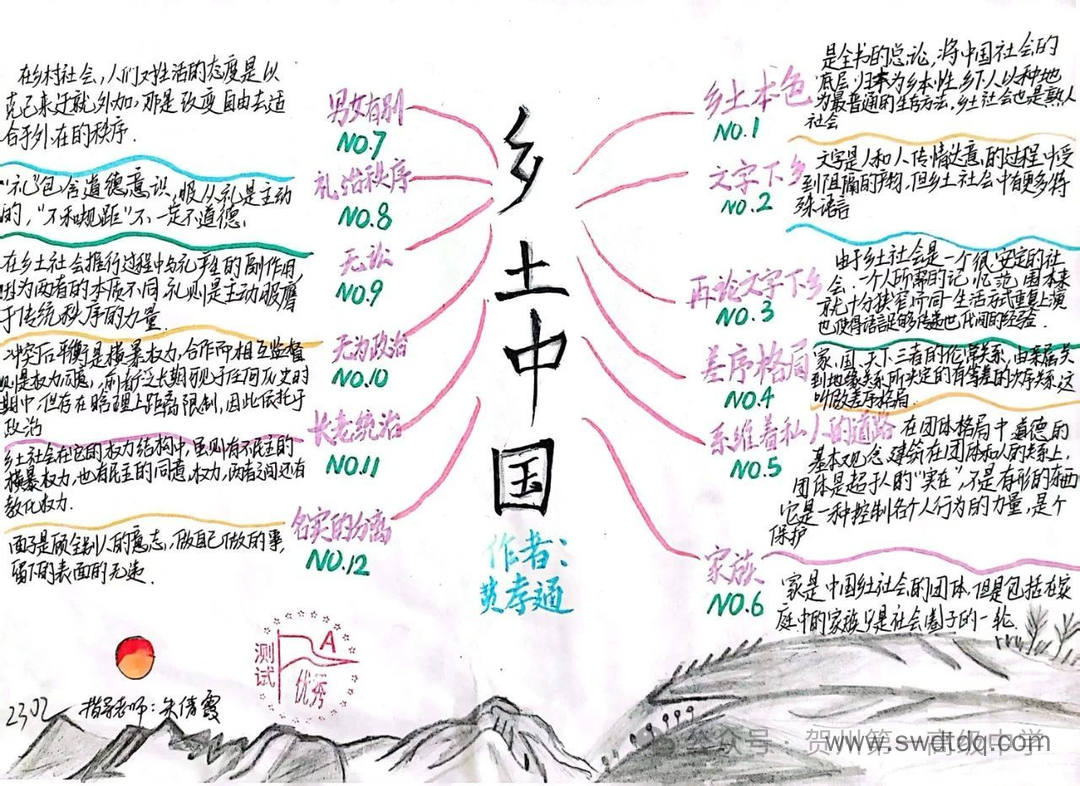 乡土中国
作者:
费孝通
乡土本色
NO.1
是全书的总论,将中国社会的
底层归本为乡本性,乡下人以种地
为最普通的生存方法,乡土社会也是熟人
社会
文字下乡
NO.2
文字是人和人传情达意的过程中受
到阻隔的产物,但乡土社会中有更多特
殊语言
再论文字下乡
NO.3
由于乡土社会是一个很安定的社
会.一个人所需的记忆范围本来
就十分狭窄,同一生活方式重复上演
也使得语言足够传递世代间的经验.
差序格局
NO.4
家、国、天下三者的伦常关系,由亲属关
到地缘关系所决定的有等差的次序关系,这
叫做差序格局.
系维着私人的道路
NO.5
在团体格局中道德的
基本观念建筑在团体和人的关系上,
团体是超于人的“实在”,不是有形的东西
它是一种控制各个人行为的力量,是个
保护
家族
NO.6
家是中国乡社会的团体.但是包括在家
庭中的家族只是社会圈子的一轮.
男女有别
NO.7
在乡村社会,人们对生活的态度是以
克己来迁就外加,那是改变自由去适
合于外在的秩序.
礼治秩序
NO.8
“礼”包含道德意识,服从礼是主动
的,“不和规距”不一定不道德.
无讼
NO.9
在乡土社会推行过程中与礼产生的副作用,
因为两者的本质不同,礼则是主动服膺
于传统秩序的力量.
无为政治
NO.10
冲突后平衡是横暴权力,合作而相互监督
则是权力同意,两者
期中,但存在
政治
长老统治
NO.11
乡土社会在它的权力结构中,虽则有不民主的
横暴权力,也有民主的同意权力,两者之间还有
教化权力.
名实的分离
NO.12
面子是顾全别人的意志,做自己做的事,
留下的表面的无违.
测试
A
优秀
2302 指导老师:朱倩霞
公众号·贺州第一高级中学
www.swdtdq.com